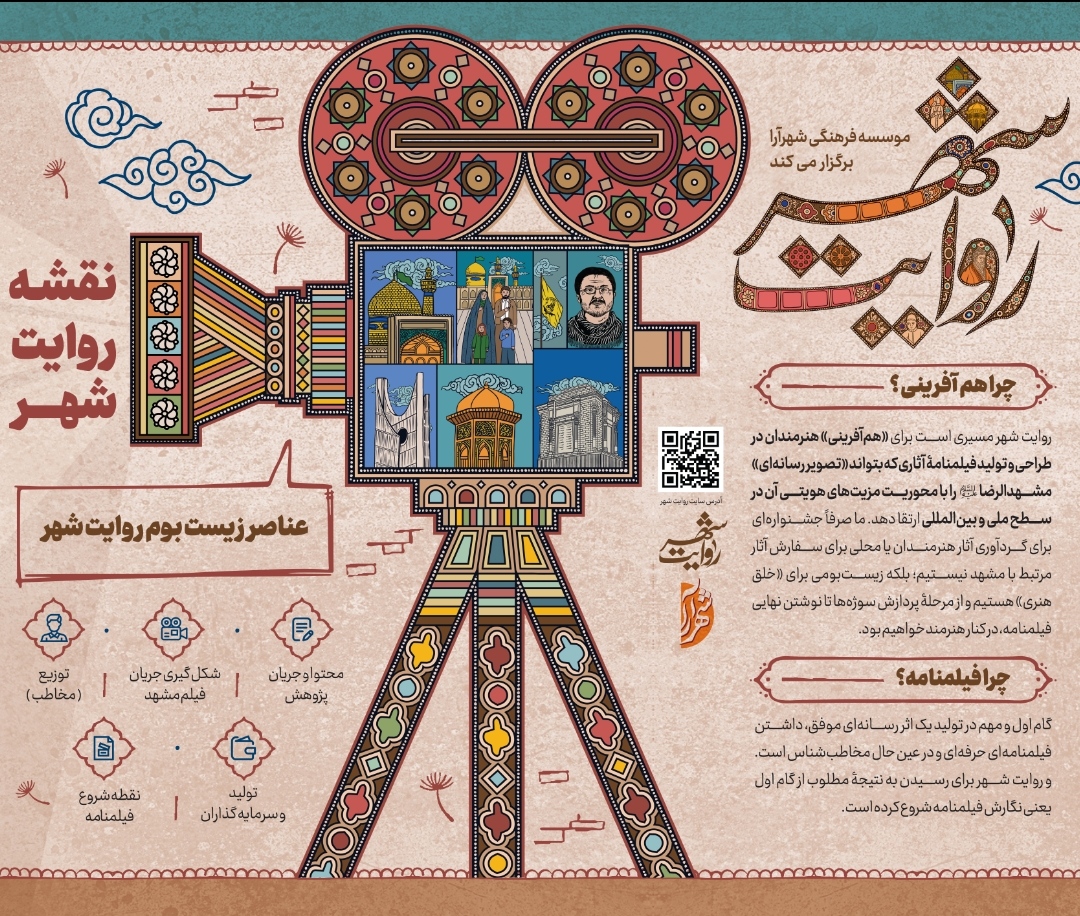 موسسه فرهنگی شهرآرا
برگزار می کند
روایت شهر
چرا هم آفرینی؟
روایت شهر مسیری است برای «هم‌آفرینی» هنرمندان در
طراحی و تولید فیلمنامهٔ آثاری که بتواند «تصویر رسانه‌ای»
مشهدالرضا ﷷ را با محوریت مزیت‌های هویتی آن در
سطح ملی و بین‌المللی ارتقا دهد. ما صرفاً جشنواره‌ای
برای گردآوری آثار هنرمندان یا محلی برای سفارش آثار
مرتبط با مشهد نیستیم؛ بلکه زیست‌بومی برای «خلق
هنری» هستیم و از مرحلهٔ پردازش سوژه‌ها تا نوشتن نهایی
فیلمنامه، در کنار هنرمند خواهیم بود.
چرا فیلمنامه؟
گام اول و مهم در تولید یک اثر رسانه‌ای موفق، داشتن
فیلمنامه‌ای حرفه‌ای و در عین حال مخاطب‌شناس است.
و روایت شهر برای رسیدن به نتیجهٔ مطلوب از گام اول
یعنی نگارش فیلمنامه شروع کرده است.
آدرس سایت روایت شهر
روایت شهر
شهرآرا
نقشه
روایت
شهر
عناصر زیست بوم روایت شهر
محتوا و جریان
پژوهش
شکل گیری جریان
فیلم مشهد
توزیع
(مخاطب)
تولید
و سرمایه گذاران
نقطه شروع
فیلمنامه